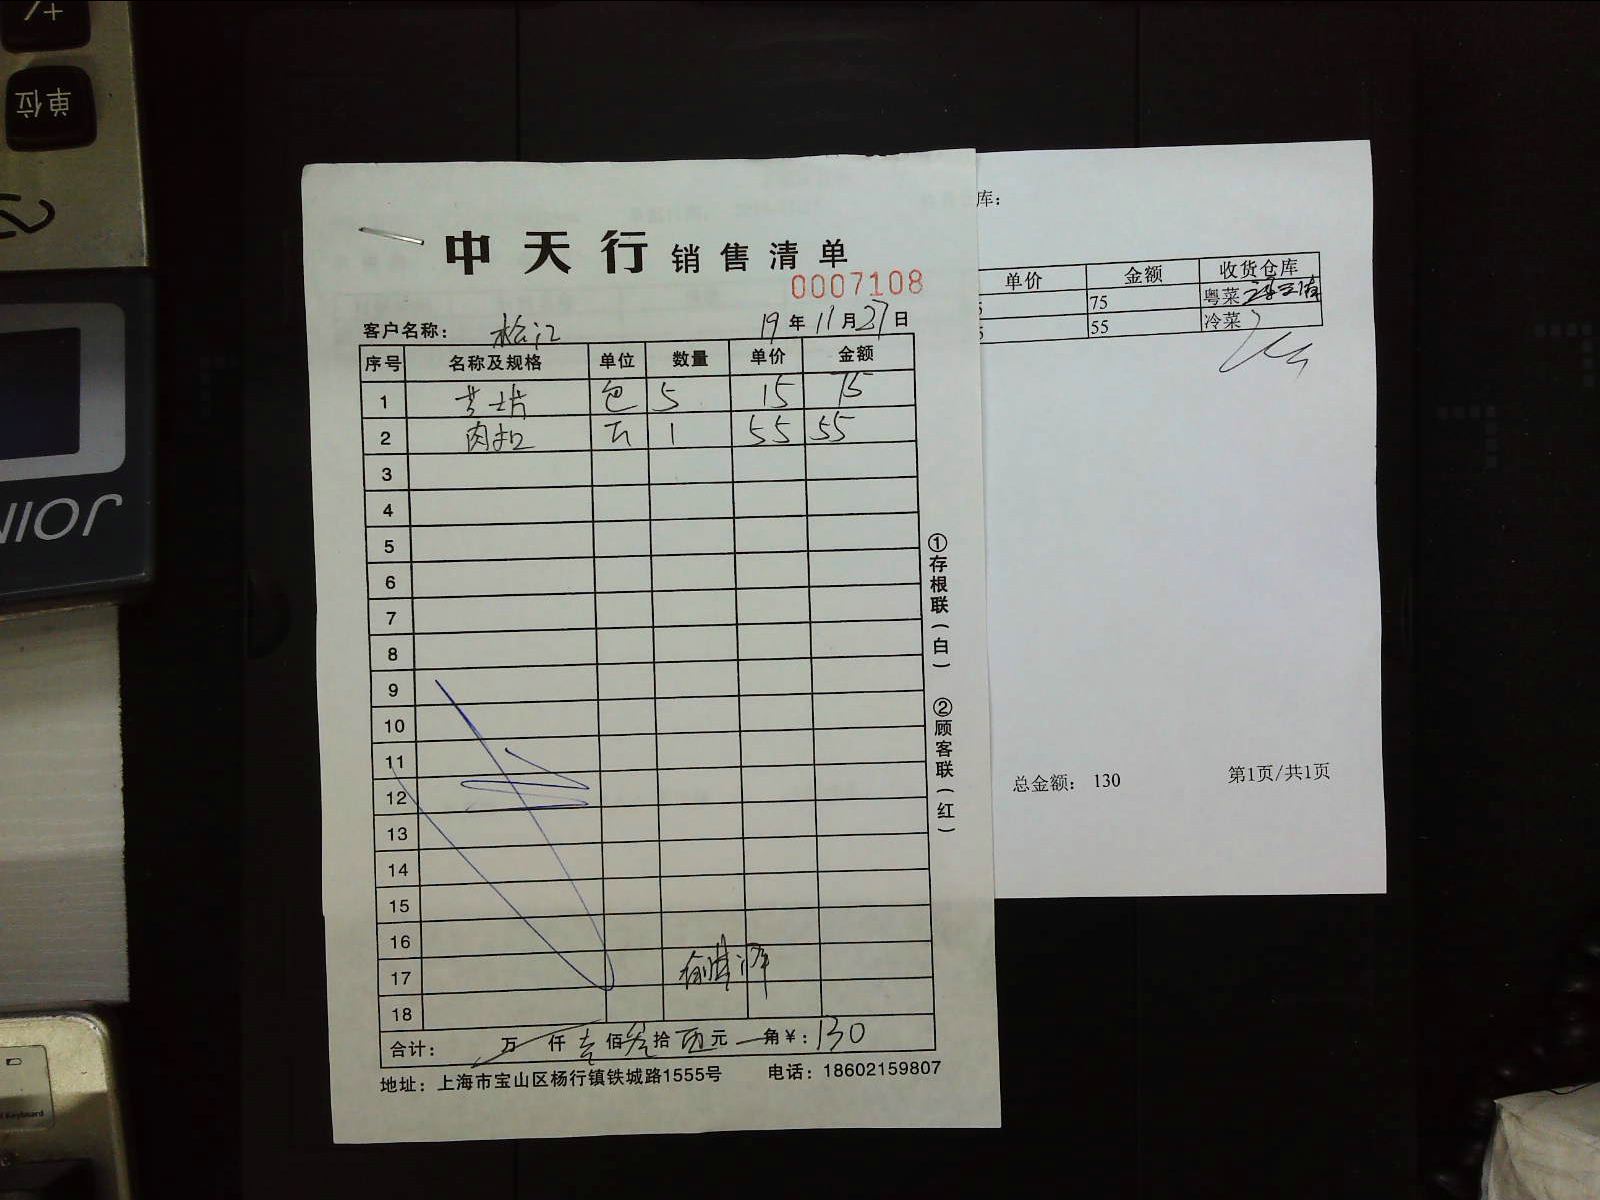 +/
单位
JOIN
中天行 销售清单
0007108
客户名称： 松江 19年11月27日
序号 名称及规格 单位 数量 单价 金额
1 芝士片 包 5 15 75
2 肉扣 1 55 55
3
4
5
6
7
8
9
10
11
12
13
14
15
16
17
18
合计： 万 仟 壹佰叁拾 元 角￥：130
地址：上海市宝山区杨行镇铁城路1555号 电话：18602159807
①存根联（白） ②顾客联（红）
库：
单价 金额 收货仓库
5 75 粤菜
5 55 冷菜
总金额： 130 第1页/共1页
Keyboard